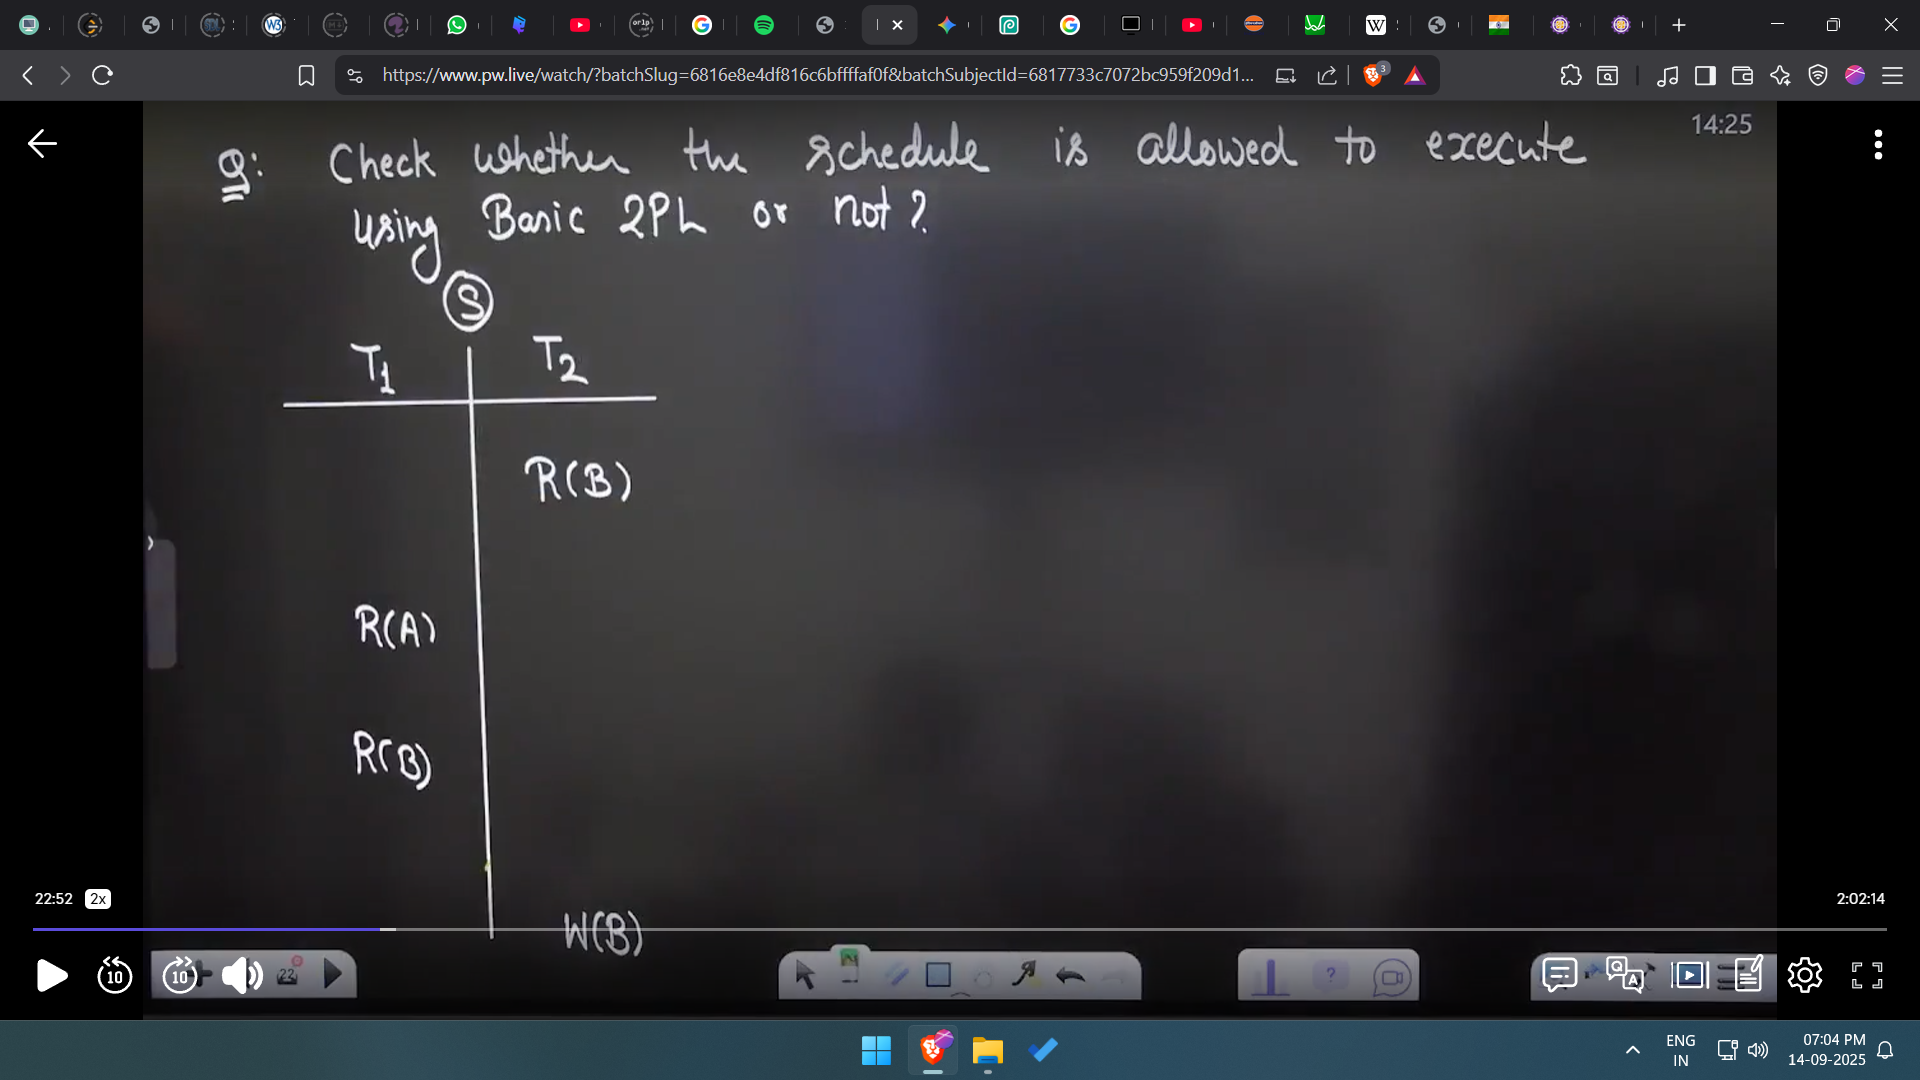 https://www.pw.live/watch/?batchSlug=6816e8e4df816c6bffffaf0f&batchSubjectId=6817733c7072bc959f209d1...
3
14:25
Q: Check whether the schedule is allowed to execute
using Basic 2PL or not?
S
T1 T2
R(B)
R(A)
R(B)
W(B)
22:52 2x
2:02:14
10 10 22
ENG
IN
07:04 PM
14-09-2025